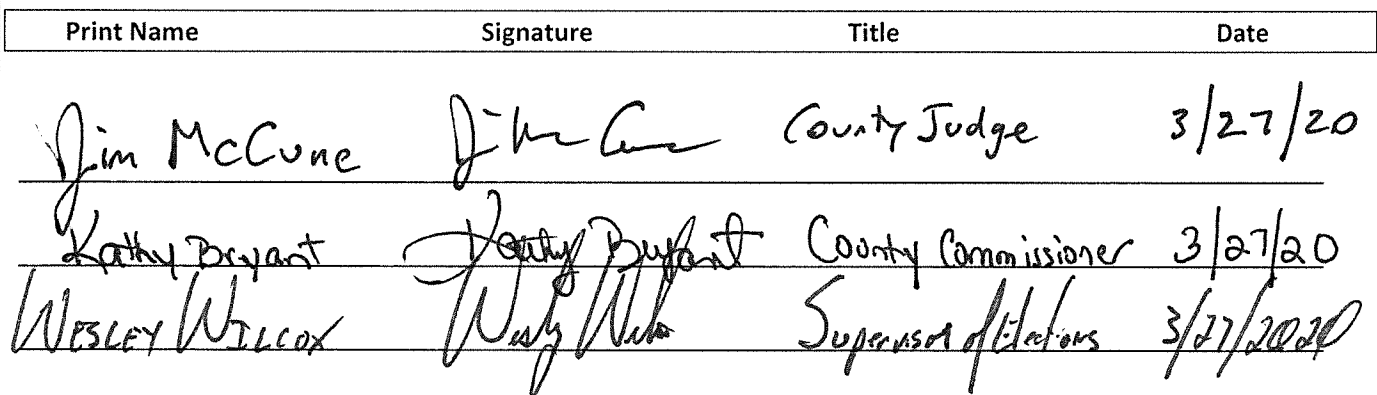 Print Name Signature Title Date
Jim McCune Jim McCune County Judge 3/27/20
Kathy Bryant Kathy Bryant County Commissioner 3/27/20
WESLEY WILCOX Wesley Wilcox Supervisor of Elections 3/27/2020